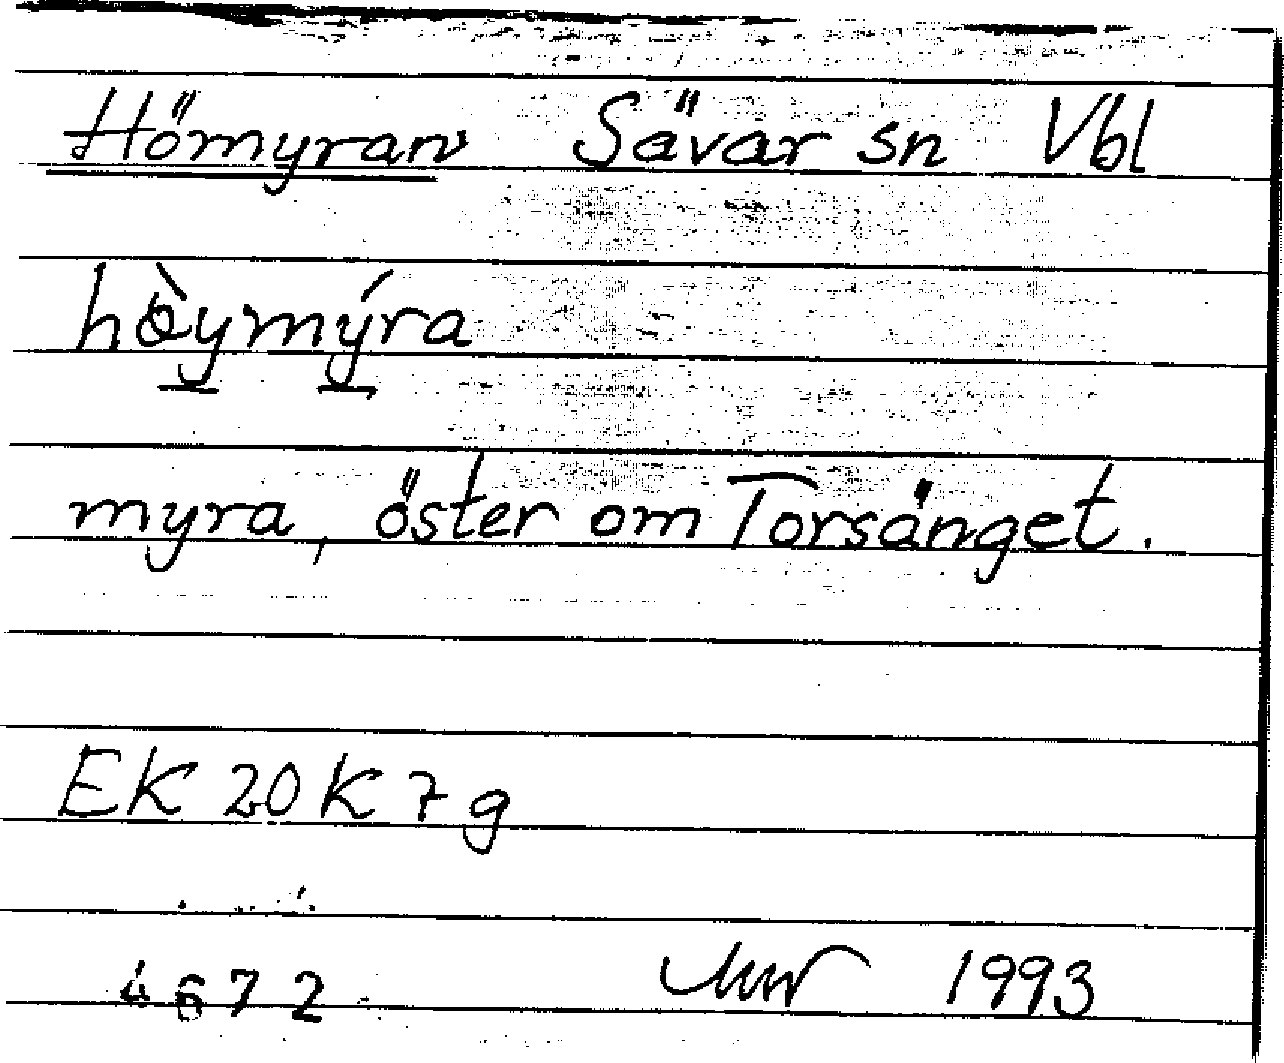 Hömyran Sävar sn Vbl
hò̀ymýra
myra, öster om Torsänget.
EK 20 K 7 g
4672 1993